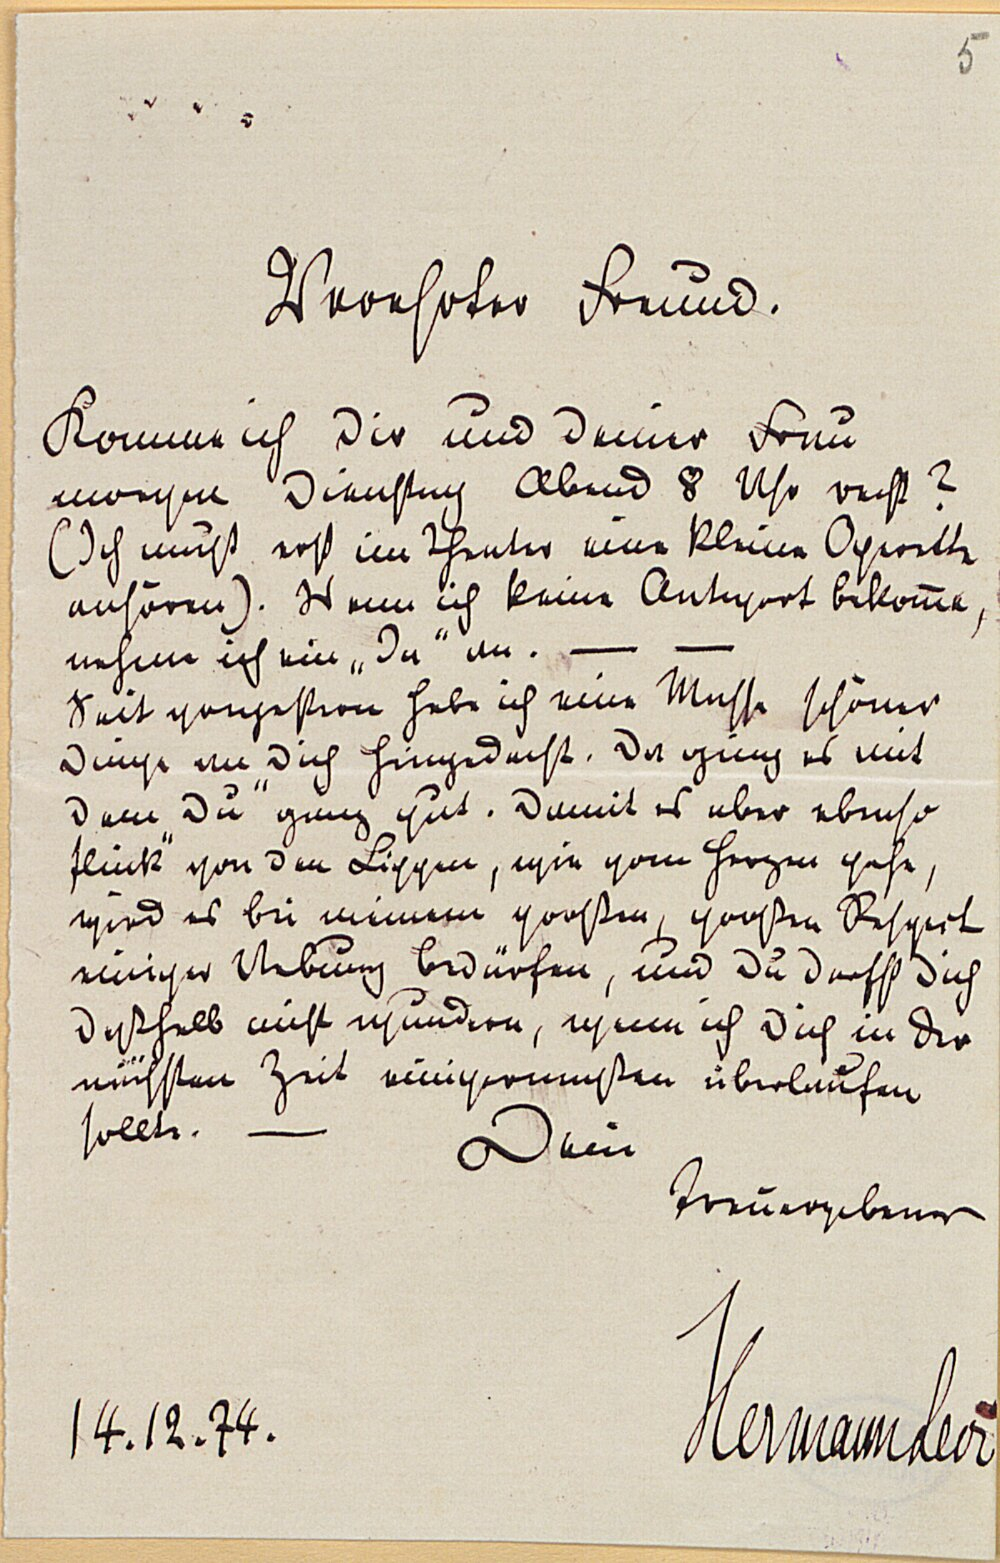 5
Verehrter Freund.
Komme ich Dir und Deiner Frau
morgen Dienstag Abend 8 Uhr recht?
(Ich muß erst im Theater eine kleine Operette
anhören). Wenn ich keine Antwort bekom̅e,
nehme ich ein „Ja“ an. — —
Seit vorgestern habe ich eine Masse schöner
Dinge an Dich hingedacht. Da ging es mit
dem „Du“ ganz gut. Damit es aber ebenso
flink von den Lippen, wie vom Herzen gehe,
wird es bei meinem großen, großen Respect
einiger Uebung bedürfen, und Du darfst Dich
deßhalb nicht wundern, wenn ich Dich in der
nächsten Zeit einigermaßen überlaufen
sollte. — Dein
treuergebener
Hermann Levi
14.12.74.